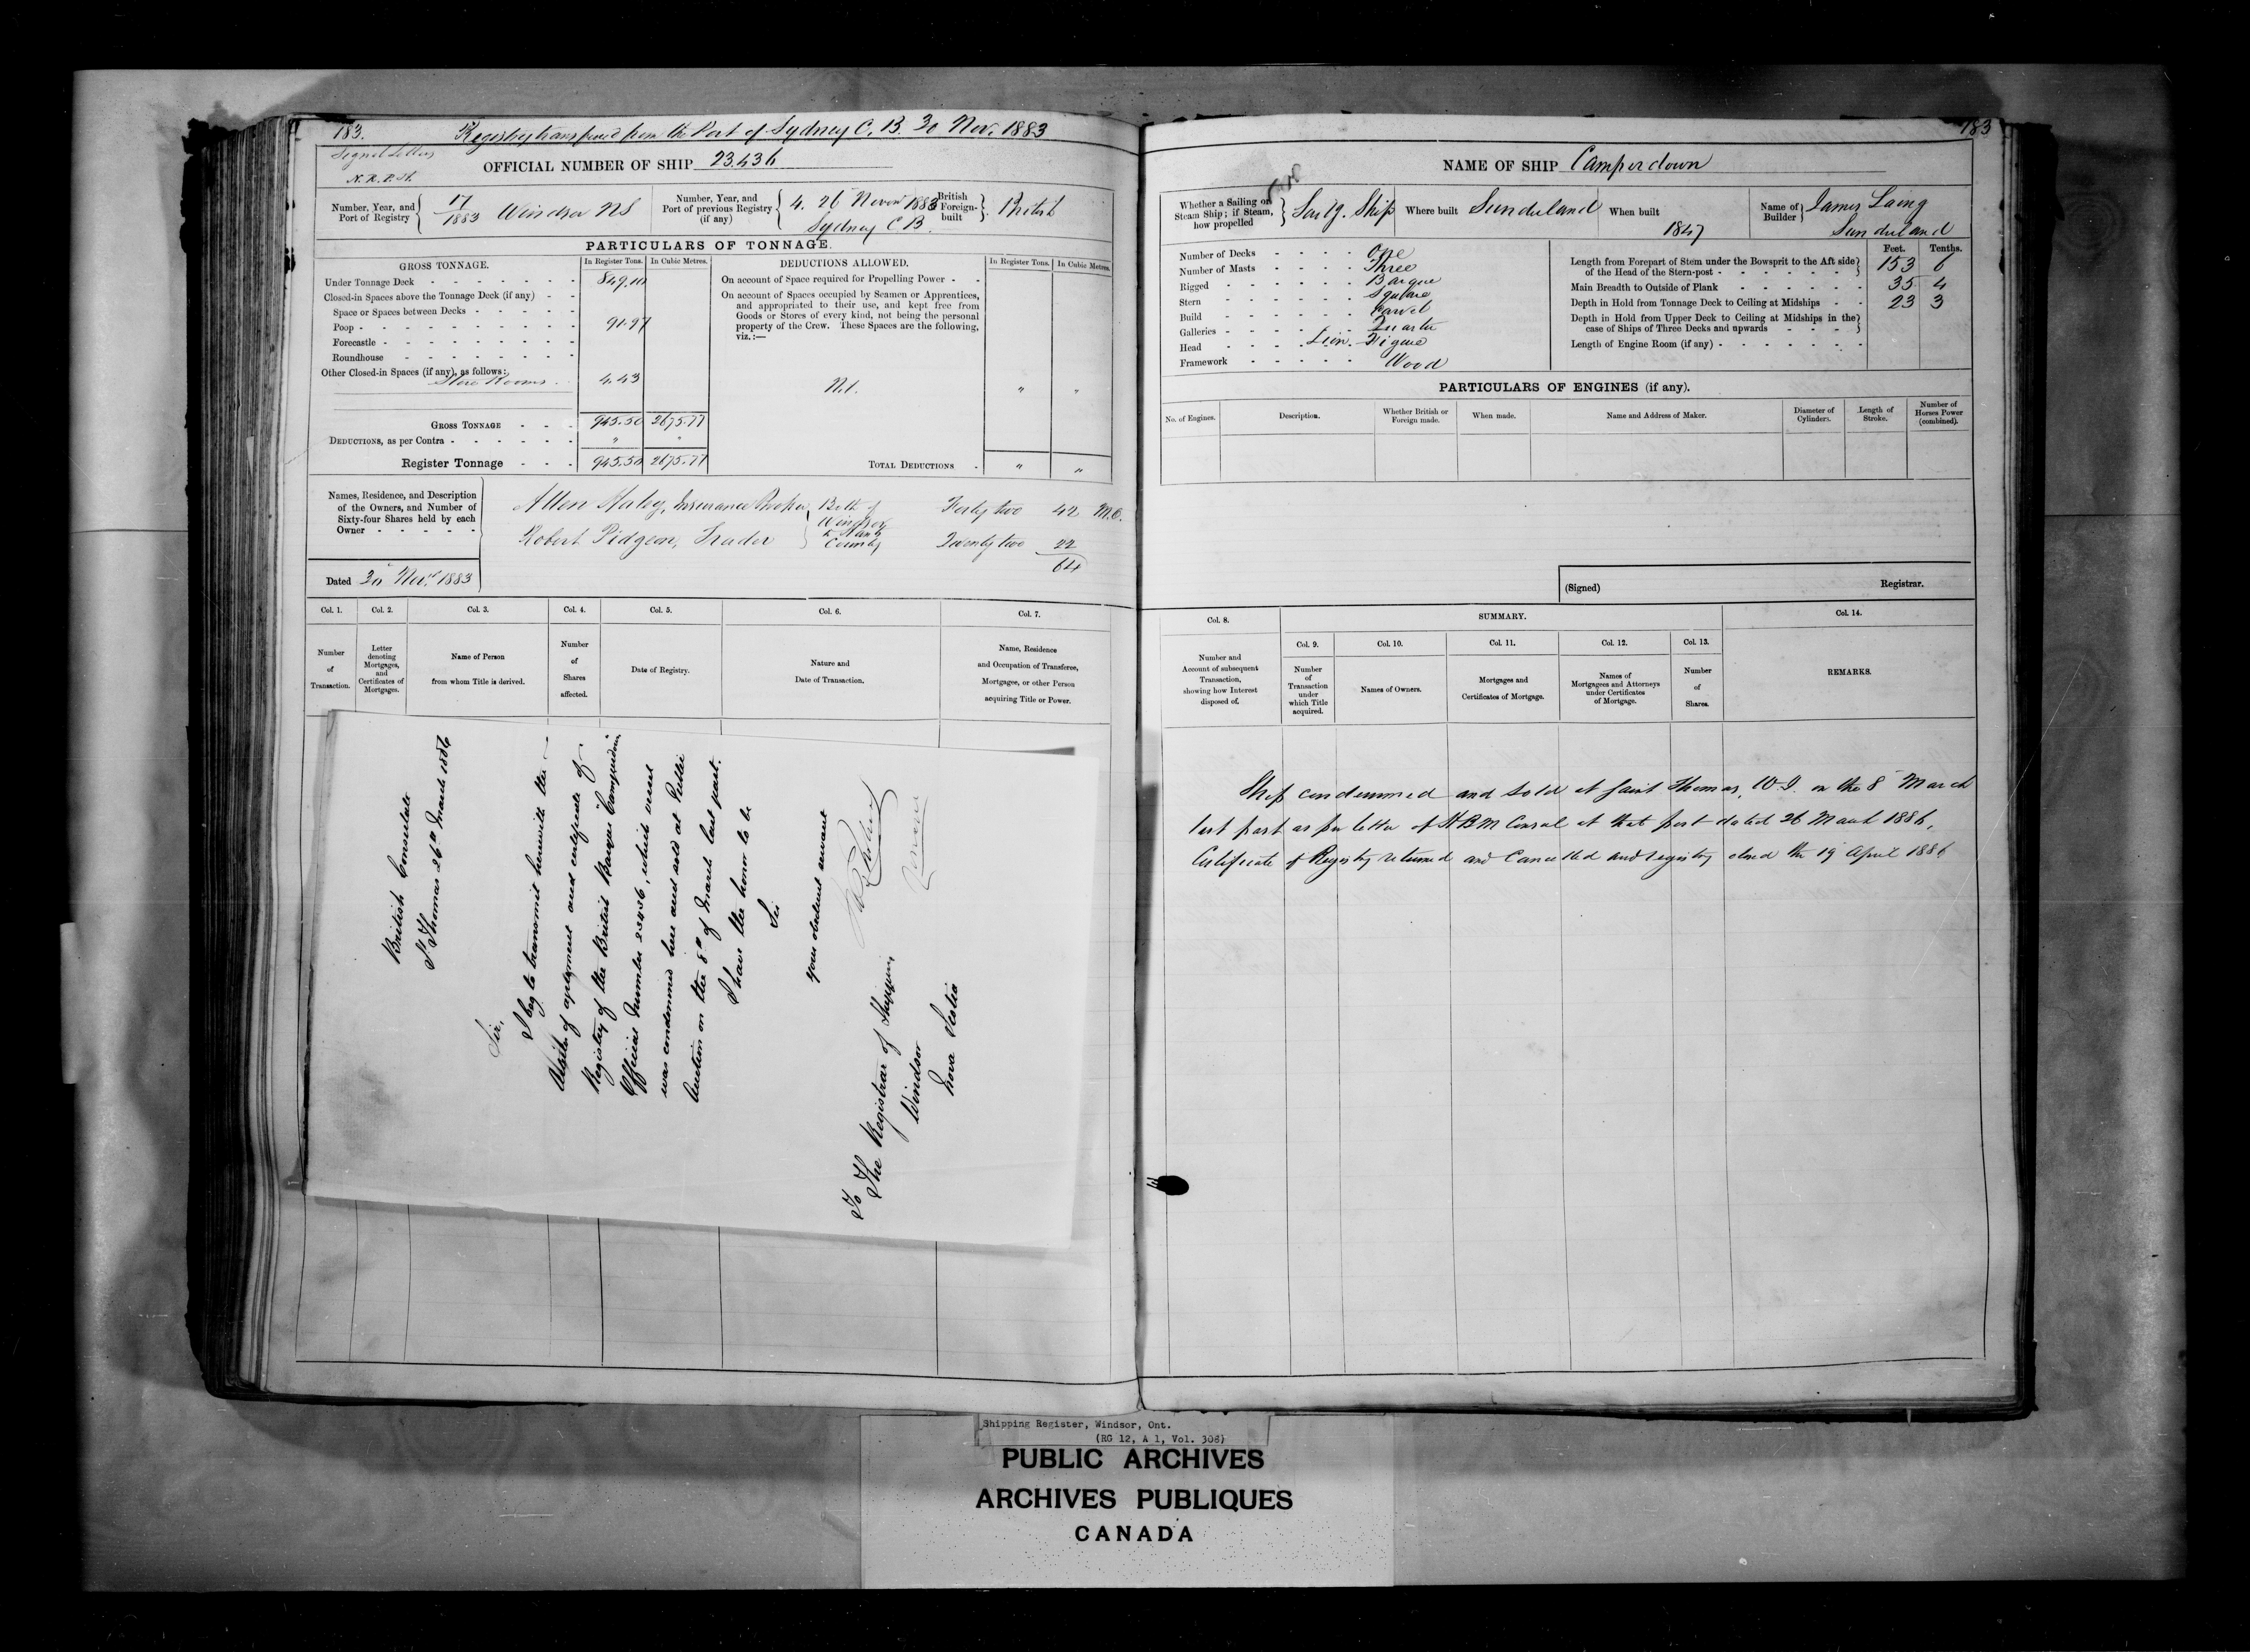 183.
Registry transferred from the Port of Sydney C. B. 30 Nov. 1883
Signal Letters
N. R. P. H.
OFFICIAL NUMBER OF SHIP 23.436
Number, Year, and Port of Registry 17/1883 Windsor NS
Number, Year, and Port of previous Registry (if any) 4. 26 Novem 1883 Sydney C B.
British Foreign-built British
PARTICULARS OF TONNAGE.
GROSS TONNAGE. In Register Tons. In Cubic Metres.
DEDUCTIONS ALLOWED. In Register Tons. In Cubic Metres.
Under Tonnage Deck 849.10
Closed-in Spaces above the Tonnage Deck (if any)
Space or Spaces between Decks
Poop 91.97
Forecastle
Roundhouse
Other Closed-in Spaces (if any), as follows:
Store Rooms 4.43
GROSS TONNAGE 945.50 2675.77
DEDUCTIONS, as per Contra " "
Register Tonnage 945.50 2675.77
On account of Space required for Propelling Power
On account of Spaces occupied by Seamen or Apprentices,
and appropriated to their use, and kept free from
Goods or Stores of every kind, not being the personal
property of the Crew. These Spaces are the following,
viz.:—
Nil. " "
TOTAL DEDUCTIONS " "
Names, Residence, and Description
of the Owners, and Number of
Sixty-four Shares held by each
Owner
Allen Haley, Insurance Broker Both of Forty two 42 M.O.
Windsor
Robert Pidgeon, Trader Hants County Twenty two 22
64
Dated 30 Novr 1883
Col. 1. Col. 2. Col. 3. Col. 4. Col. 5. Col. 6. Col. 7.
Number of Transaction.
Letter denoting Mortgages, and Certificates of Mortgages.
Name of Person from whom Title is derived.
Number of Shares affected.
Date of Registry.
Nature and Date of Transaction.
Name, Residence and Occupation of Transferee, Mortgagee, or other Person acquiring Title or Power.
British Consulate
St Thomas 26th March 1886
Sir,
I beg to transmit herewith the
of agreement and certificate of
Registry of the British Barque "Camperdown"
Official Number 23436, which vessel
was condemned here and sold at Public
Auction on the 8th of March last past.
I have the honor to be
Sir
your obedient servant
Consul
To
The Registrar of Shipping
Windsor
Nova Scotia
183
NAME OF SHIP Camperdown
Whether a Sailing or Steam Ship; if Steam, how propelled Sailg. Ship
Where built Sunderland
When built 1847
Name of Builder James Laing Sunderland
Number of Decks One
Number of Masts Three
Rigged Barque
Stern Square
Build Carvel
Galleries Quarter
Head Lion Figure
Framework Wood
Feet. Tenths.
Length from Forepart of Stem under the Bowsprit to the Aft side
of the Head of the Stern-post 153 6
Main Breadth to Outside of Plank 35 4
Depth in Hold from Tonnage Deck to Ceiling at Midships 23 3
Depth in Hold from Upper Deck to Ceiling at Midships in the
case of Ships of Three Decks and upwards
Length of Engine Room (if any)
PARTICULARS OF ENGINES (if any).
No. of Engines. Description. Whether British or Foreign made. When made. Name and Address of Maker. Diameter of Cylinders. Length of Stroke. Number of Horses Power (combined).
(Signed) Registrar.
Col. 8. SUMMARY. Col. 14.
Col. 9. Col. 10. Col. 11. Col. 12. Col. 13.
Number and Account of subsequent Transaction, showing how Interest disposed of.
Number of Transaction under which Title acquired.
Names of Owners.
Mortgages and Certificates of Mortgage.
Names of Mortgagees and Attorneys under Certificates of Mortgage.
Number of Shares.
REMARKS.
Ship condemned and sold at Saint Thomas, W.I. on the 8 March
last past as per letter of H B M Consul at that port dated 26 March 1886,
Certificate of Registry returned and Cancelled and registry closed the 19 April 1886
Shipping Register, Windsor, Ont.
(RG 12, A 1, Vol. 308)
PUBLIC ARCHIVES
ARCHIVES PUBLIQUES
CANADA